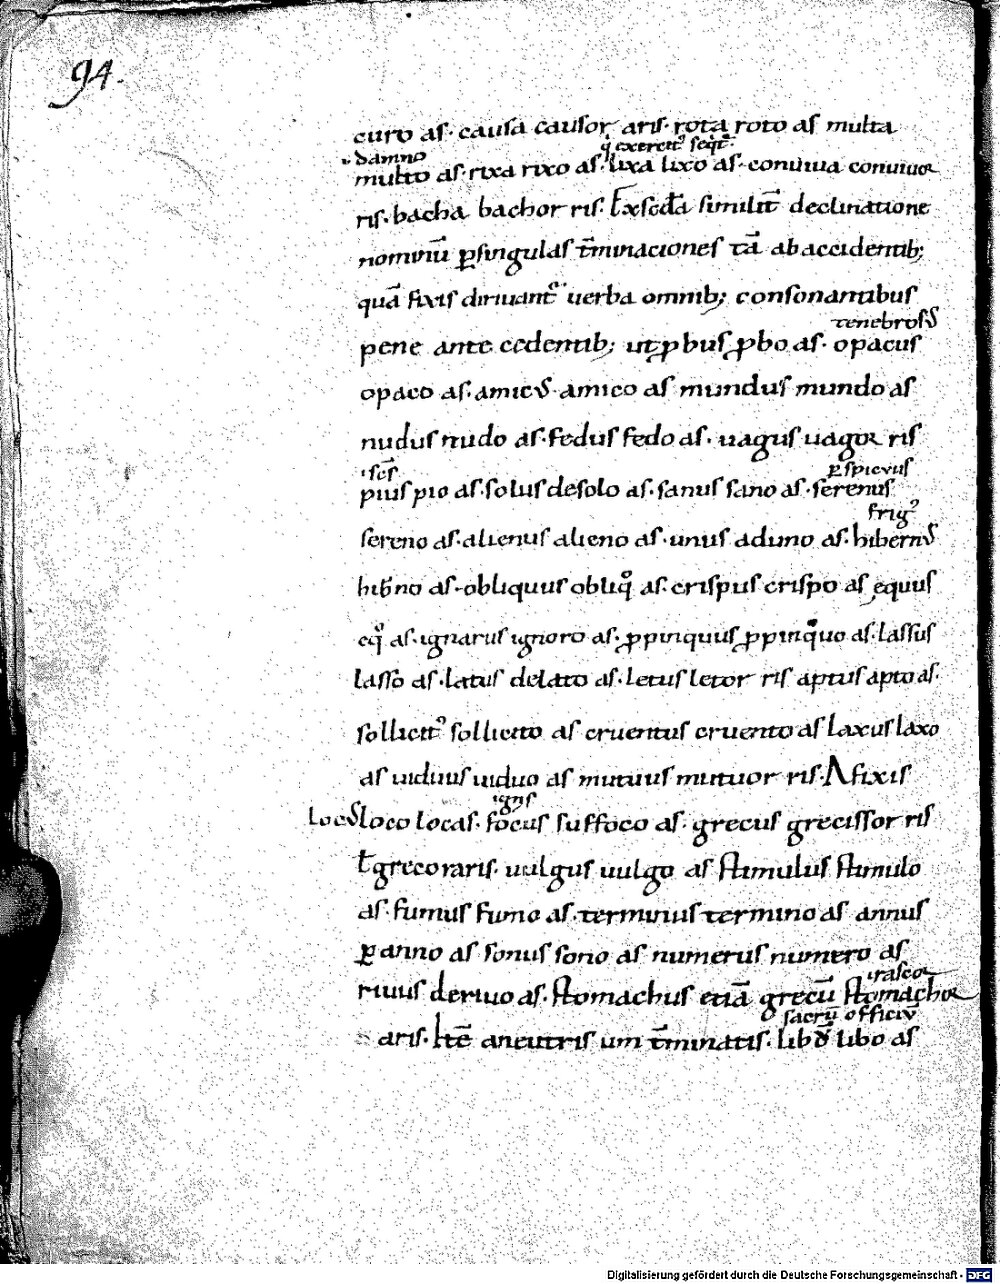 94.
curo as. causa causor aris. rota roto as multa
.i. damno
q̇ exercitꝰ seqͥt̄
multo as. rixa rixo as. lixa lixo as. conuiua conuiuor
ris. bacha bachor ris. Ex scd̄a similit̄ declinatione
nominū ꝑ singulas t̄minaciones tā ab accidentib;
quā fixis diriuant᷒ uerba omnib; consonantibus
tenebrosus
pene ante cedentib; ut ꝓbus ꝓbo as. opacus
opaco as. amicus amico as mundus mundo as
nudus nudo as. fedus fedo as. uagus uagor ris
.i. sc̄s
ꝑspicuus
pius pio as. solus desolo as. sanus sano as. serenus
frigꝰ
sereno as. alienus alieno as. unus aduno as. hibernus
hib̄no as. obliquus obliq̊ as. crispus crispo as equus
eq̊ as. ignarus ignoro as. ꝓpinquus ꝓpinquo as. lassus
lasso as. latus delato as. letus letor ris aptus apto as.
sollicitꝰ sollicito as cruentus cruento as laxus laxo
as uiduus uiduo as mutuus mutuor ris. A fixis
ignis
locus loco locas. focus suffoco as. grecus grecissor ris
ł grecor aris. uulgus uulgo as stimulus stimulo
as. fumus fumo as. terminus termino as annus
ꝑanno as sonus sono as numerus numero as
irascor
riuus deriuo as. stomachus etiā grecū stomachor
sacrū officiū
aris. Itē aneutris um t̄minatis. libū libo as
Digitalisierung gefördert durch die Deutsche Forschungsgemeinschaft - DFG